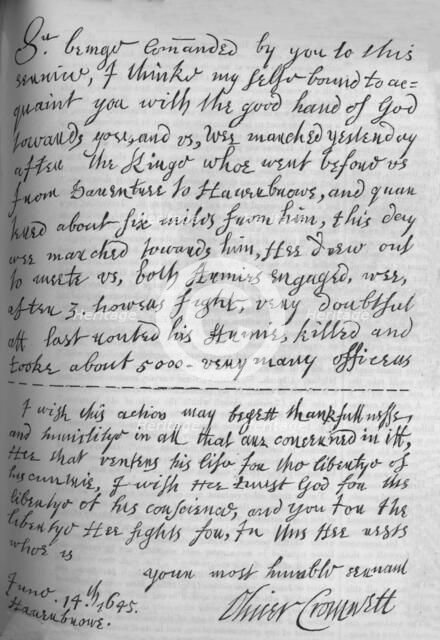 Sr. beinge Comanded by you to this
service, I thinke my selfe bound to ac=
quaint you with the good hand of God
towards you, and vs, wee marched yesterday
after the Kinge whoe went before vs
from Daventree to Haverbrowe, and quar
tered about six miles from him, this day
wee marched towards him, Hee drew out
to meete vs, both Armies engaged, wee,
after 3 howers fight, very doubtful
att last routed his Armie, killed and
tooke about 5000 - very many officers
I wish this action may begett thankfullnesse,
and humilitye in all that are concerned in itt,
Hee that venters his life for the libertye of
his cuntrie, I wish Hee trust God for the
libertye of his conscience, and you for the
libertye Hee fights for, In this Hee rests
whoe is
your most humble servant
June. 14.th 1645.
Haverbrowe.
Oliver Cromwell
Heritage
Heritage
Heritage
Heritage